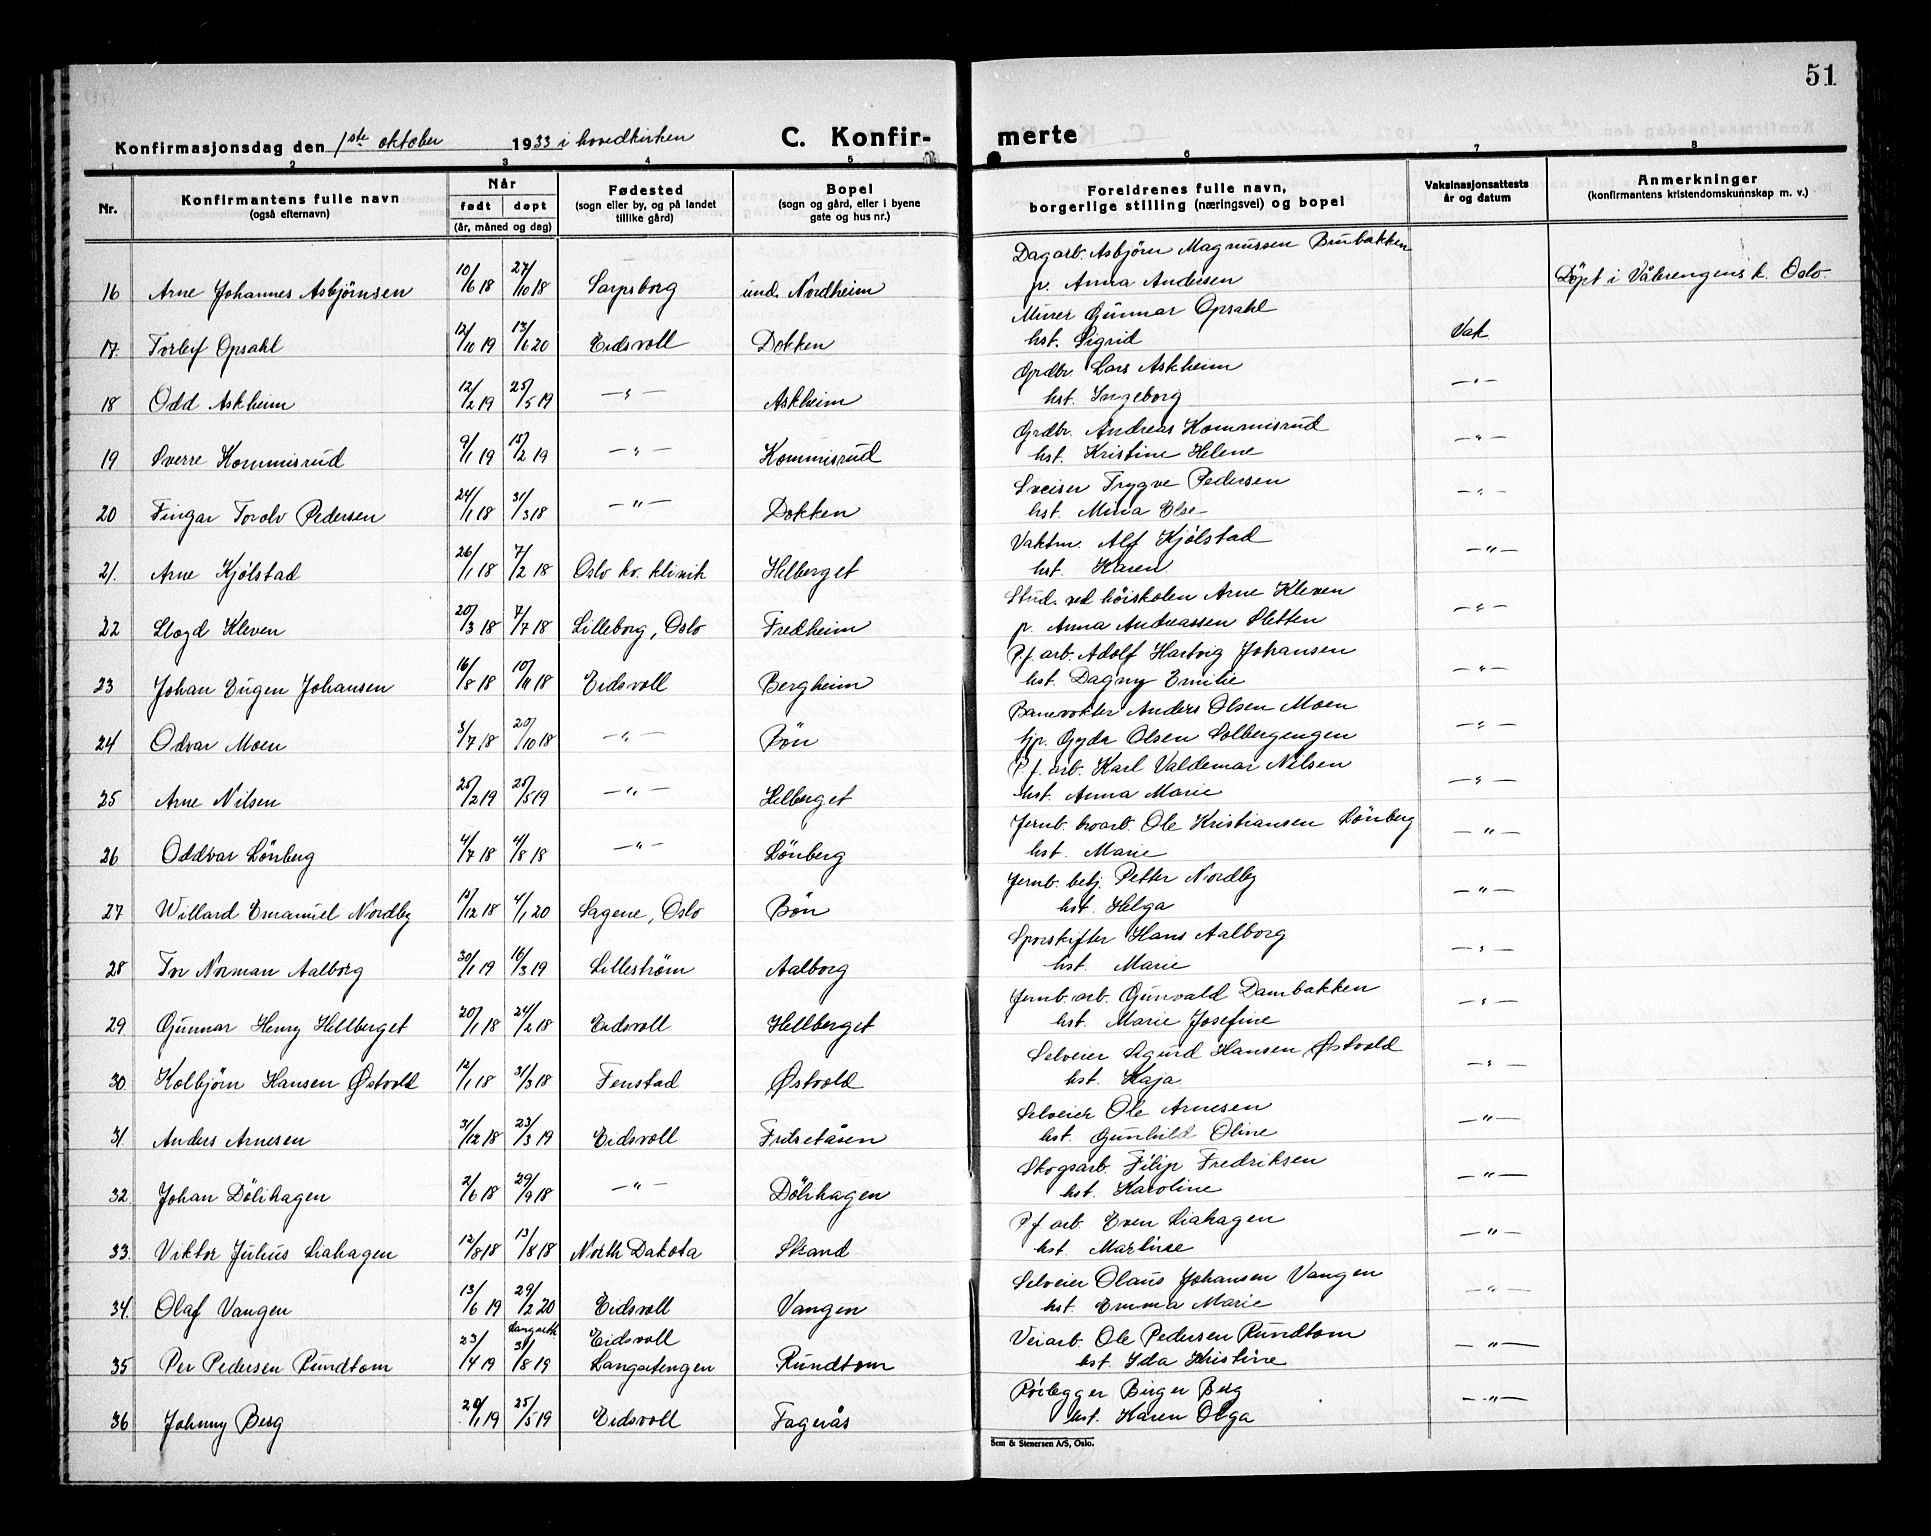 51
Konfirmasjonsdag den 1ste oktober 1933 i hovedkirken C. Konfirmerte
1 2 3 4 5 6 7 8
Nr. Konfirmantens fulle navn (også efternavn) Når født døpt (år, måned og dag) Fødested (sogn eller by, og på landet tillike gård) Bopel (sogn og gård, eller i byene gate og hus nr.) Foreldrenes fulle navn, borgerlige stilling (næringsvei) og bopel Vaksinasjonsattests år og datum Anmerkninger (konfirmantens kristendomskunnskap m. v.)
Dagarb. Asbjørn Magnussen Brubakken
16 Arne Johannes Asbjörnsen 10/6 18 27/10 18 Sarpsborg und. Nordheim p. Anna Andersen Döpt i Vålerengens k. Oslo
Murer Gunnar Opsahl
17. Torleif Opsahl 12/10 19 13/6 20 Eidsvoll Dokken hst. Sigrid Vak
Grdbr. Lars Askheim
18 Odd Askheim 12/2 19 25/5 19 —"— Askheim hst. Ingeborg —"—
Grdbr. Andreas Kommisrud
19 Sverre Kommisrud 9/1 19 15/2 19 —"— Kommisrud hst. Kristine Helene —"—
Sveiser Trygve Pedersen
20 Fingar Torolv Pedersen 24/1 18 31/3 18 —"— Dokken hst. Mina Else —"—
Vaktm. Alf Kjölstad
21. Arne Kjölstad 26/1 18 7/2 18 Oslo kv. klinik Helberget hst. Karen —"—
Stud. ved höiskolen Arne Kleven
22 Kleven 20/3 18 7/7 18 Lilleborg, Oslo Fredheim p. Anna Andreassen Sletten —"—
P.f. arb. Adolf Hartvig Johansen
23 Johan Eugen Johansen 16/8 18 10/11 18 Eidsvoll Bergheim hst. Dagny Emilie —"—
Banevokter Anders Olsen Moen
24 Odvar Moen 3/7 18 20/10 18 —"— Bön hst. Gyda Olsen Solbergengen —"—
P.f. arb. Karl Valdemar Nilsen
25 Arne Nilsen 25/2 19 25/5 19 —"— Helberget hst. Anna Marie —"—
Jernb. broarb. Ole Kristiansen Lönberg
26 Oddvar Lönberg 4/7 18 4/8 18 —"— Lönberg hst. Marie —"—
Jernb. betj. Petter Nordby
27 Willard Emanuel Nordby /12 18 4/1 20 Sagene, Oslo Bön hst. Helga —"—
Sporskifter Hans Aalborg
28 Tor Norman Aalborg 30/1 19 16/3 19 Lillestrøm Aalborg hst. Marie —"—
Jernb. arb. Gunvald Dambakken
29 Gunnar Henry Hellberget 20/1 18 24/2 18 Eidsvoll Hellberget hst. Marie Josefine —"—
Selveier Sigurd Hansen Østvold
30 Kolbjörn Hansen Østvold 12/1 18 31/3 18 Fenstad Østvold hst. Kaja —"—
Selveier Ole Arnesen
31. Anders Arnesen 31/12 18 23/3 19 Eidsvoll Frilsetåsen hst. Gunhild Oline —"—
Skogsarb. Filip Fredriksen
32. Johan Dölihagen 2/6 18 29/9 18 —"— Dölihagen hst. Karoline —"—
P.f arb. Even Liahagen
33. Viktor Julius Liahagen 12/8 18 13/8 18 North Dakota Strand hst. Martine —"—
Selveier Olaus Johansen Vangen
34. Olaf Vangen 13/6 19 29/2 20 Eidsvoll Vangen hst. Emma Marie —"—
Langseth Eidsvoll Veiarb. Ole Pedersen Rundtom
35 Per Pedersen Rundtom 23/4 19 31/8 19 Langsetengen Rundtom hst. Ida Kristine —"—
Rörlegger Birger Berg
36 Johnny Berg 20/1 19 25/5 19 Eidsvoll Fagerås hst. Karen Olga —"—
Sem & Stenersen A/S, Oslo.